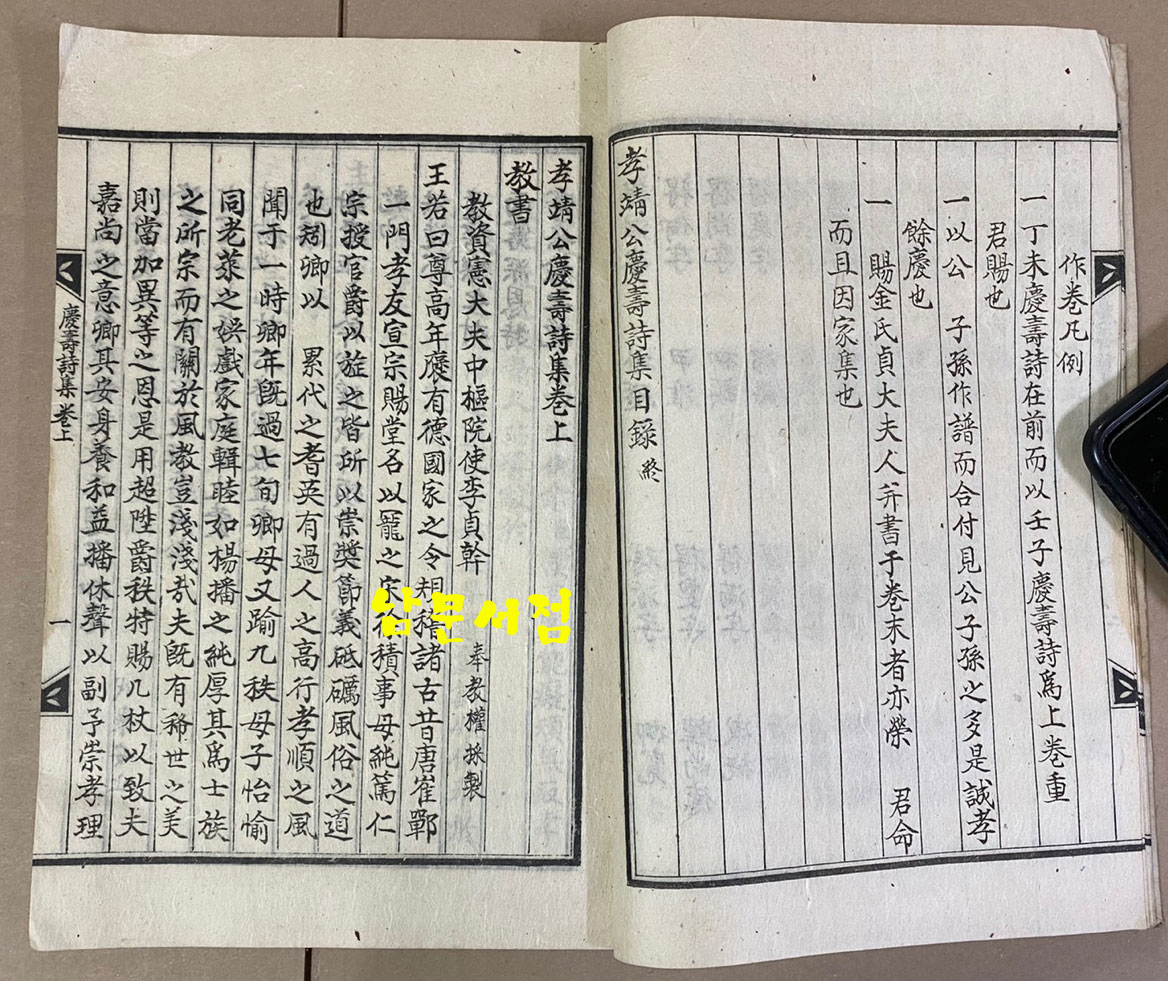 作卷凡例
一丁未慶壽詩在前而以壬子慶壽詩爲上卷重
君賜也
一以公 子孫作譜而合付見公子孫之多是誠孝
餘慶也
一 賜金氏貞大夫人并書于卷末者亦榮 君命
而且因家集也
孝靖公慶壽詩集目錄 終
孝靖公慶壽詩集卷上
教書
教資憲大夫中樞院使李貞幹 奉教權採製
王若曰尊高年褒有德國家之令規稽諸古昔唐崔鄲
一門孝友宣宗賜堂名以寵之宋徐積事母純篤仁
宗授官爵以旌之皆所以崇奬節義砥礪風俗之道
也矧卿以 累代之耆英有過人之高行孝順之風
聞于一時卿年旣過七旬卿母又踰九秩母子怡愉
同老萊之娛戲家庭輯睦如楊播之純厚其爲士族
之所宗而有關於風教豈淺淺哉夫旣有稀世之美
則當加異等之恩是用超陞爵秩特賜几杖以致夫
嘉尚之意卿其安身養和益播休聲以副予崇孝理
慶壽詩集 卷上
一
남문서점